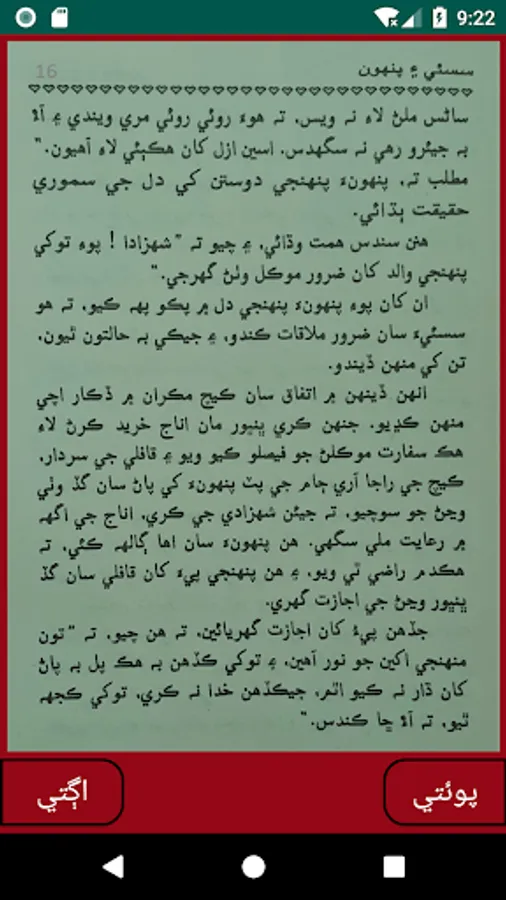 9:22
سسئي ۽ پنهون 16
سائس ملڻ لاءِ نہ ويس، تہ هوءَ روئي روئي مري ويندي ۽ آءٌ
بہ جيئرو رهي نہ سگهدس. اسين ازل کان هڪٻئي لاءِ آهيون."
مطلب تہ، پنهونءَ پنهنجي دوستن کي دل جي سموري
حقيقت ٻڌائي.
هنن سندس همت وڌائي، ۽ چيو تہ "شهزادا ! پوءِ توکي
پنهنجي والد کان ضرور موڪل وٺڻ گهرجي."
ان کان پوءِ پنهونءَ پنهنجي دل ۾ پڪو پهہ ڪيو، تہ هو
سسئيءَ سان ضرور ملاقات ڪندو، ۽ جيڪي بہ حالتون ٿيون،
تن کي منهن ڏيندو.
انهن ڏينهن ۾ اتفاق سان ڪيچ مڪران ۾ ڏڪار اچي
منهن ڪڍيو. جنهن ڪري ڀنڀور مان اناج خريد ڪرڻ لاءِ
هڪ سفارت موڪلڻ جو فيصلو ڪيو ويو ۽ قافلي جي سردار،
ڪيچ جي راجا آري ڄام جي پٽ پنهونءَ کي پاڻ سان گڏ وٺي
وڃڻ جو سوچيو، تہ جيئن شهزادي جي ڪري، اناج جي اگهہ
۾ رعايت ملي سگهي. هن پنهونءَ سان اها ڳالهہ ڪئي، تہ
هڪدم راضي ٿي ويو، ۽ هن پنهنجي پيءُ کان قافلي سان گڏ
ڀنڀور وڃڻ جي اجازت گهري.
جڏهن پيءُ کان اجازت گهريائين، تہ هن چيو، تہ "تون
منهنجي اکين جو نور آهين، ۽ توکي ڪڏهن بہ هڪ پل بہ پاڻ
کان ڌار نہ ڪيو اٿم، جيڪڏهن خدا نہ ڪري، توکي ڪجهہ
ٿيو، تہ آءٌ ڇا ڪندس."
پوئتي
اڳتي